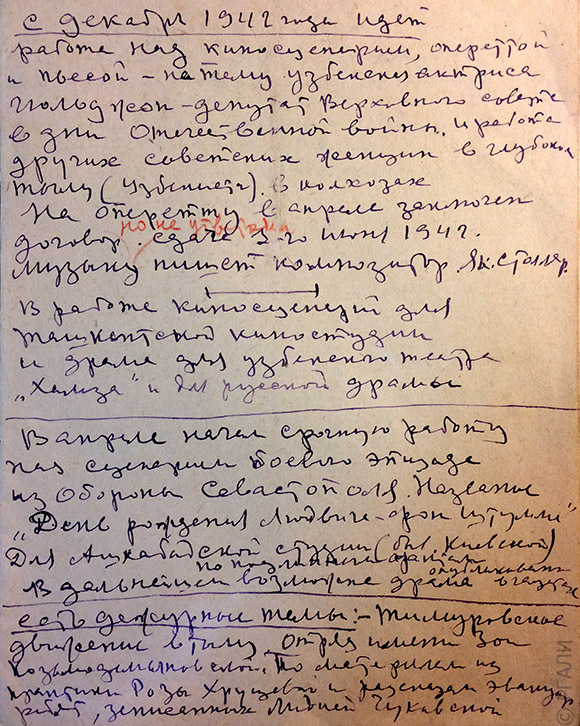 с декабря 1941 года идет
работа над киносценарием, опереттой
и пьесой – на тему узбекская актриса
депутат Верховного совета
в дни Отечественной войны. и работа
других советских женщин в глубоком
тылу (Узбекистан). в колхозах
На оперетту в апреле заключен
но не утвержден
договор. сдача 2-го июня 1942.
Музыку пишет композитор. Як. Столляр.
В работе киносценарий для
ташкентской киностудии
и драма для узбекского театра
„Хамза" и для русской драмы
В апреле начал срочную работу
над сценарием боевого эпизода
из Обороны Севастополя. Название
„День рождения
Для Ашхабадской студии (быв. Киевской)
по подлинному опубликован
В дальнейшем возможна драма в газетах
есть дежурные темы: – Тимуровское
движение в тылу, Отряд имени Зои
Космодемьяновской. По материалам из
практики Розы Хрущевой и рассказам эвакуир
ребят, записанных Лидией Чуковской